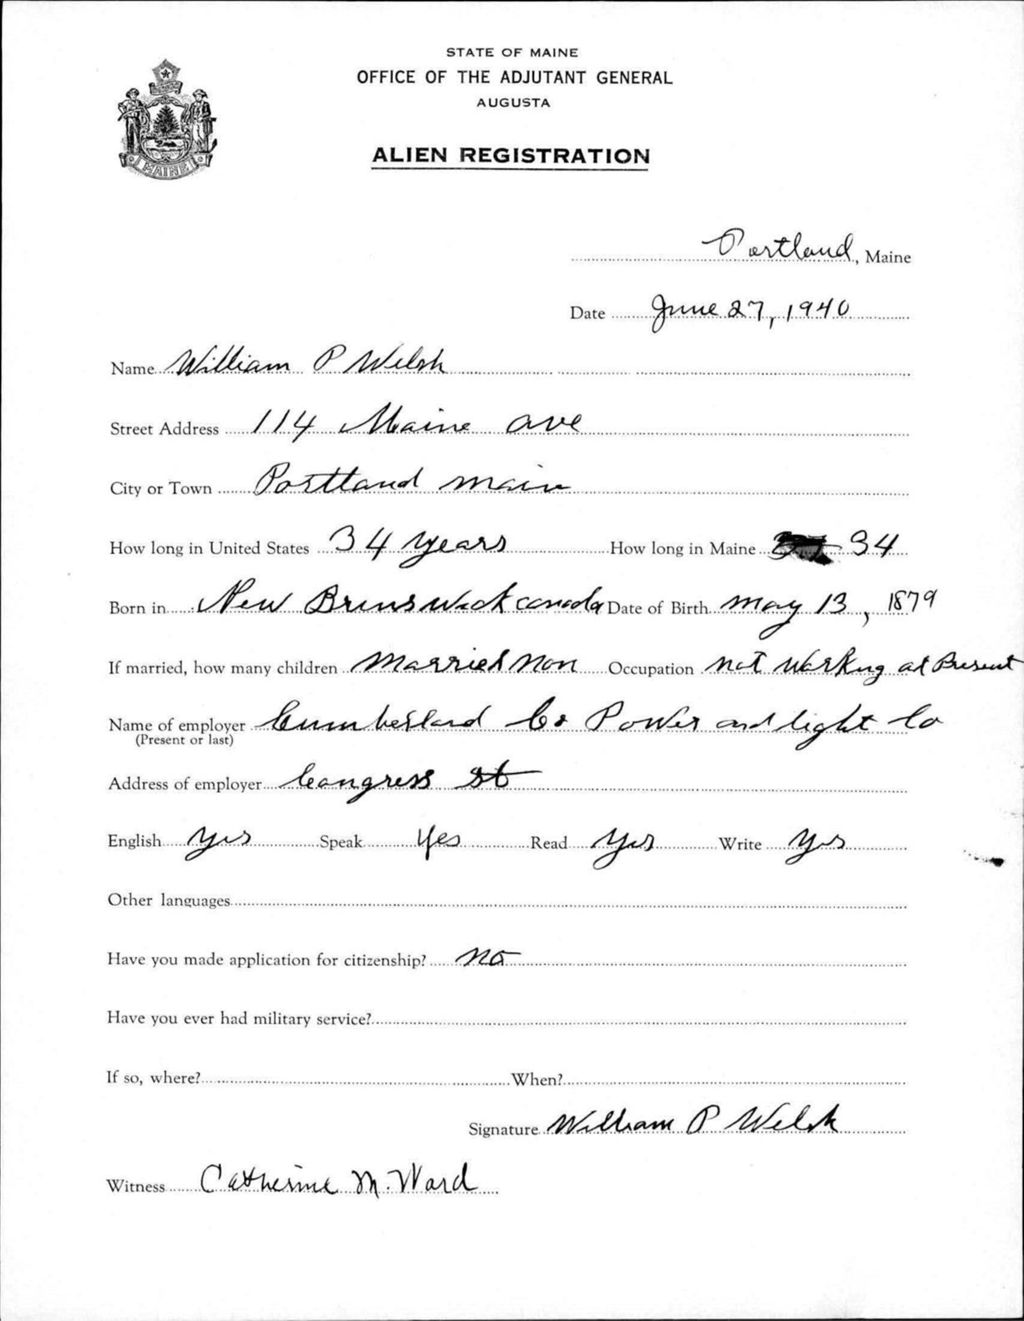 STATE OF MAINE
OFFICE OF THE ADJUTANT GENERAL
AUGUSTA
ALIEN REGISTRATION
MAINE
Portland, Maine
Date June 27, 1940
Name William P Welsh
Street Address 114 Maine Ave
City or Town Portland Main
How long in United States 34 years How long in Maine 34
Born in New Brunswick Canada Date of Birth May 13, 1879
If married, how many children Married Non Occupation Not Working at Present
Name of employer Cumberland Co Power and light Co
(Present or last)
Address of employer Congress St
English Yes Speak Yes Read Yes Write Yes
Other languages
Have you made application for citizenship? No
Have you ever had military service?
If so, where? When?
Signature William P Welsh
Witness Catherine M. Ward